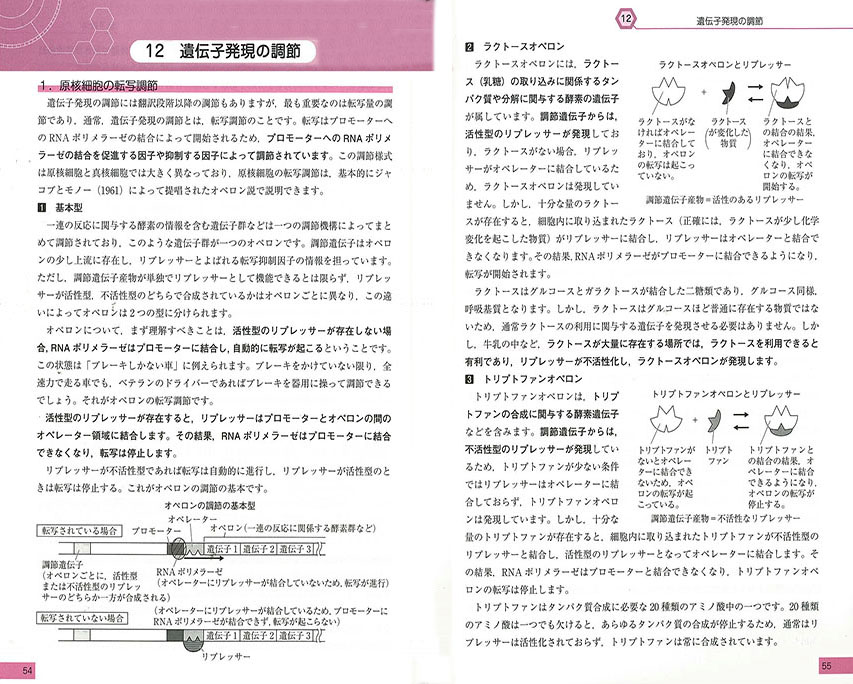 12 遺伝子発現の調節
1. 原核細胞の転写調節
遺伝子発現の調節には翻訳段階以降の調節もありますが，最も重要なのは転写量の調
節であり，通常，遺伝子発現の調節とは，転写調節のことです。転写はプロモーターへ
のRNAポリメラーゼの結合によって開始されるため，プロモーターへのRNAポリメ
ラーゼの結合を促進する因子や抑制する因子によって調節されています。この調節様式
は原核細胞と真核細胞では大きく異なっており，原核細胞の転写調節は，基本的にジャ
コブとモノー（1961）によって提唱されたオペロン説で説明できます。
1 基本型
一連の反応に関与する酵素の情報を含む遺伝子群などは一つの調節機構によってまと
めて調節されており，このような遺伝子群が一つのオペロンです。調節遺伝子はオペロ
ンの少し上流に存在し，リプレッサーとよばれる転写抑制因子の情報を担っています。
ただし，調節遺伝子産物が単独でリプレッサーとして機能できるとは限らず，リプレッ
サーが活性型，不活性型のどちらで合成されているかはオペロンごとに異なり，この違
いによってオペロンは2つの型に分けられます。
オペロンについて，まず理解すべきことは，活性型のリプレッサーが存在しない場
合，RNAポリメラーゼはプロモーターに結合し，自動的に転写が起こるということです。
この状態は「ブレーキしかない車」に例えられます。ブレーキをかけていない限り，全
速力で走る車でも，ベテランのドライバーであればブレーキを器用に操って調節できる
でしょう。それがオペロンの転写調節です。
活性型のリプレッサーが存在すると，リプレッサーはプロモーターとオペロンの間の
オペレーター領域に結合します。その結果，RNAポリメラーゼはプロモーターに結合
できなくなり，転写は停止します。
リプレッサーが不活性型であれば転写は自動的に進行し，リプレッサーが活性型のと
きは転写は停止する。これがオペロンの調節の基本です。
オペロンの調節の基本型
転写されている場合
オペレーター
プロモーター
オペロン（一連の反応に関係する酵素群など）
遺伝子1 遺伝子2 遺伝子3
調節遺伝子
（オペロンごとに，活性型
または不活性型のリプレッ
サーのどちらか一方が合成される）
RNAポリメラーゼ
（オペレーターにリプレッサーが結合していないため，転写が進行）
転写されていない場合
（オペレーターにリプレッサーが結合しているため，プロモーターに
RNAポリメラーゼが結合できず，転写が起こらない）
遺伝子1 遺伝子2 遺伝子3
リプレッサー
54
12
遺伝子発現の調節
2 ラクトースオペロン
ラクトースオペロンには，ラクトー
ス（乳糖）の取り込みに関係するタン
パク質や分解に関与する酵素の遺伝子
が属しています。調節遺伝子からは，
活性型のリプレッサーが発現してお
り，ラクトースがない場合，リプレッ
サーがオペレーターに結合しているた
め，ラクトースオペロンは発現してい
ません。しかし，十分な量のラクトー
スが存在すると，細胞内に取り込まれたラクトース（正確には，ラクトースが少し化学
変化を起こした物質）がリプレッサーに結合し，リプレッサーはオペレーターと結合で
きなくなります。その結果，RNAポリメラーゼがプロモーターに結合できるようになり，
転写が開始されます。
ラクトースオペロンとリプレッサー
+
ラクトースがな
ければオペレー
ターに結合して
おり，オペロン
の転写は起こっ
ていない。
ラクトース
（が変化した
物質）
ラクトースと
の結合の結果，
オペレーター
に結合できな
くなり，オペ
ロンの転写が
開始する。
調節遺伝子産物＝活性のあるリプレッサー
ラクトースはグルコースとガラクトースが結合した二糖類であり，グルコース同様，
呼吸基質となります。しかし，ラクトースはグルコースほど普通に存在する物質ではな
いため，通常ラクトースの利用に関与する遺伝子を発現させる必要はありません。しか
し，牛乳の中など，ラクトースが大量に存在する場所では，ラクトースを利用できると
有利であり，リプレッサーが不活性化し，ラクトースオペロンが発現します。
3 トリプトファンオペロン
トリプトファンオペロンは，トリプ
トファンの合成に関与する酵素遺伝子
などを含みます。調節遺伝子からは，
不活性型のリプレッサーが発現してい
るため，トリプトファンが少ない条件
ではリプレッサーはオペレーターに結
合しておらず，トリプトファンオペロ
ンは発現しています。しかし，十分な
量のトリプトファンが存在すると，細胞内に取り込まれたトリプトファンが不活性型の
リプレッサーと結合し，活性型のリプレッサーとなってオペレーターに結合します。そ
の結果，RNAポリメラーゼはプロモーターと結合できなくなり，トリプトファンオペ
ロンの転写は停止します。
トリプトファンオペロンとリプレッサー
+
トリプトファンが
ないとオペレー
ターに結合でき
ないため，オペ
ロンの転写が起
こっている。
トリプト
ファン
トリプトファンと
の結合の結果，オ
ペレーターに結合
できるようになり，
オペロンの転写が
停止する。
調節遺伝子産物＝不活性なリプレッサー
トリプトファンはタンパク質合成に必要な20種類のアミノ酸中の一つです。20種類
のアミノ酸は一つでも欠けると，あらゆるタンパク質の合成が停止するため，通常はリ
プレッサーは活性化されておらず，トリプトファンは常に合成されています。
55